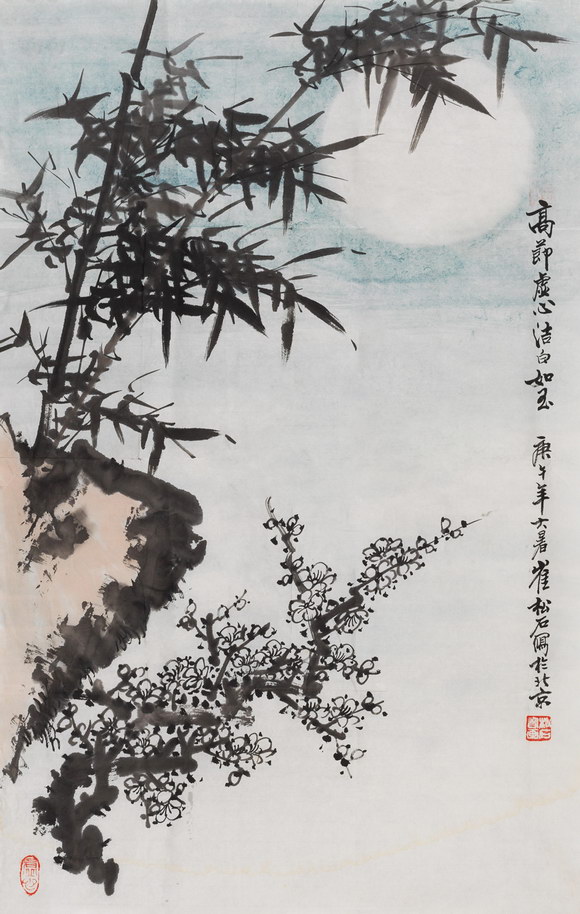 高節虛心洁白如玉 庚午年大暑崔松石寫於北京